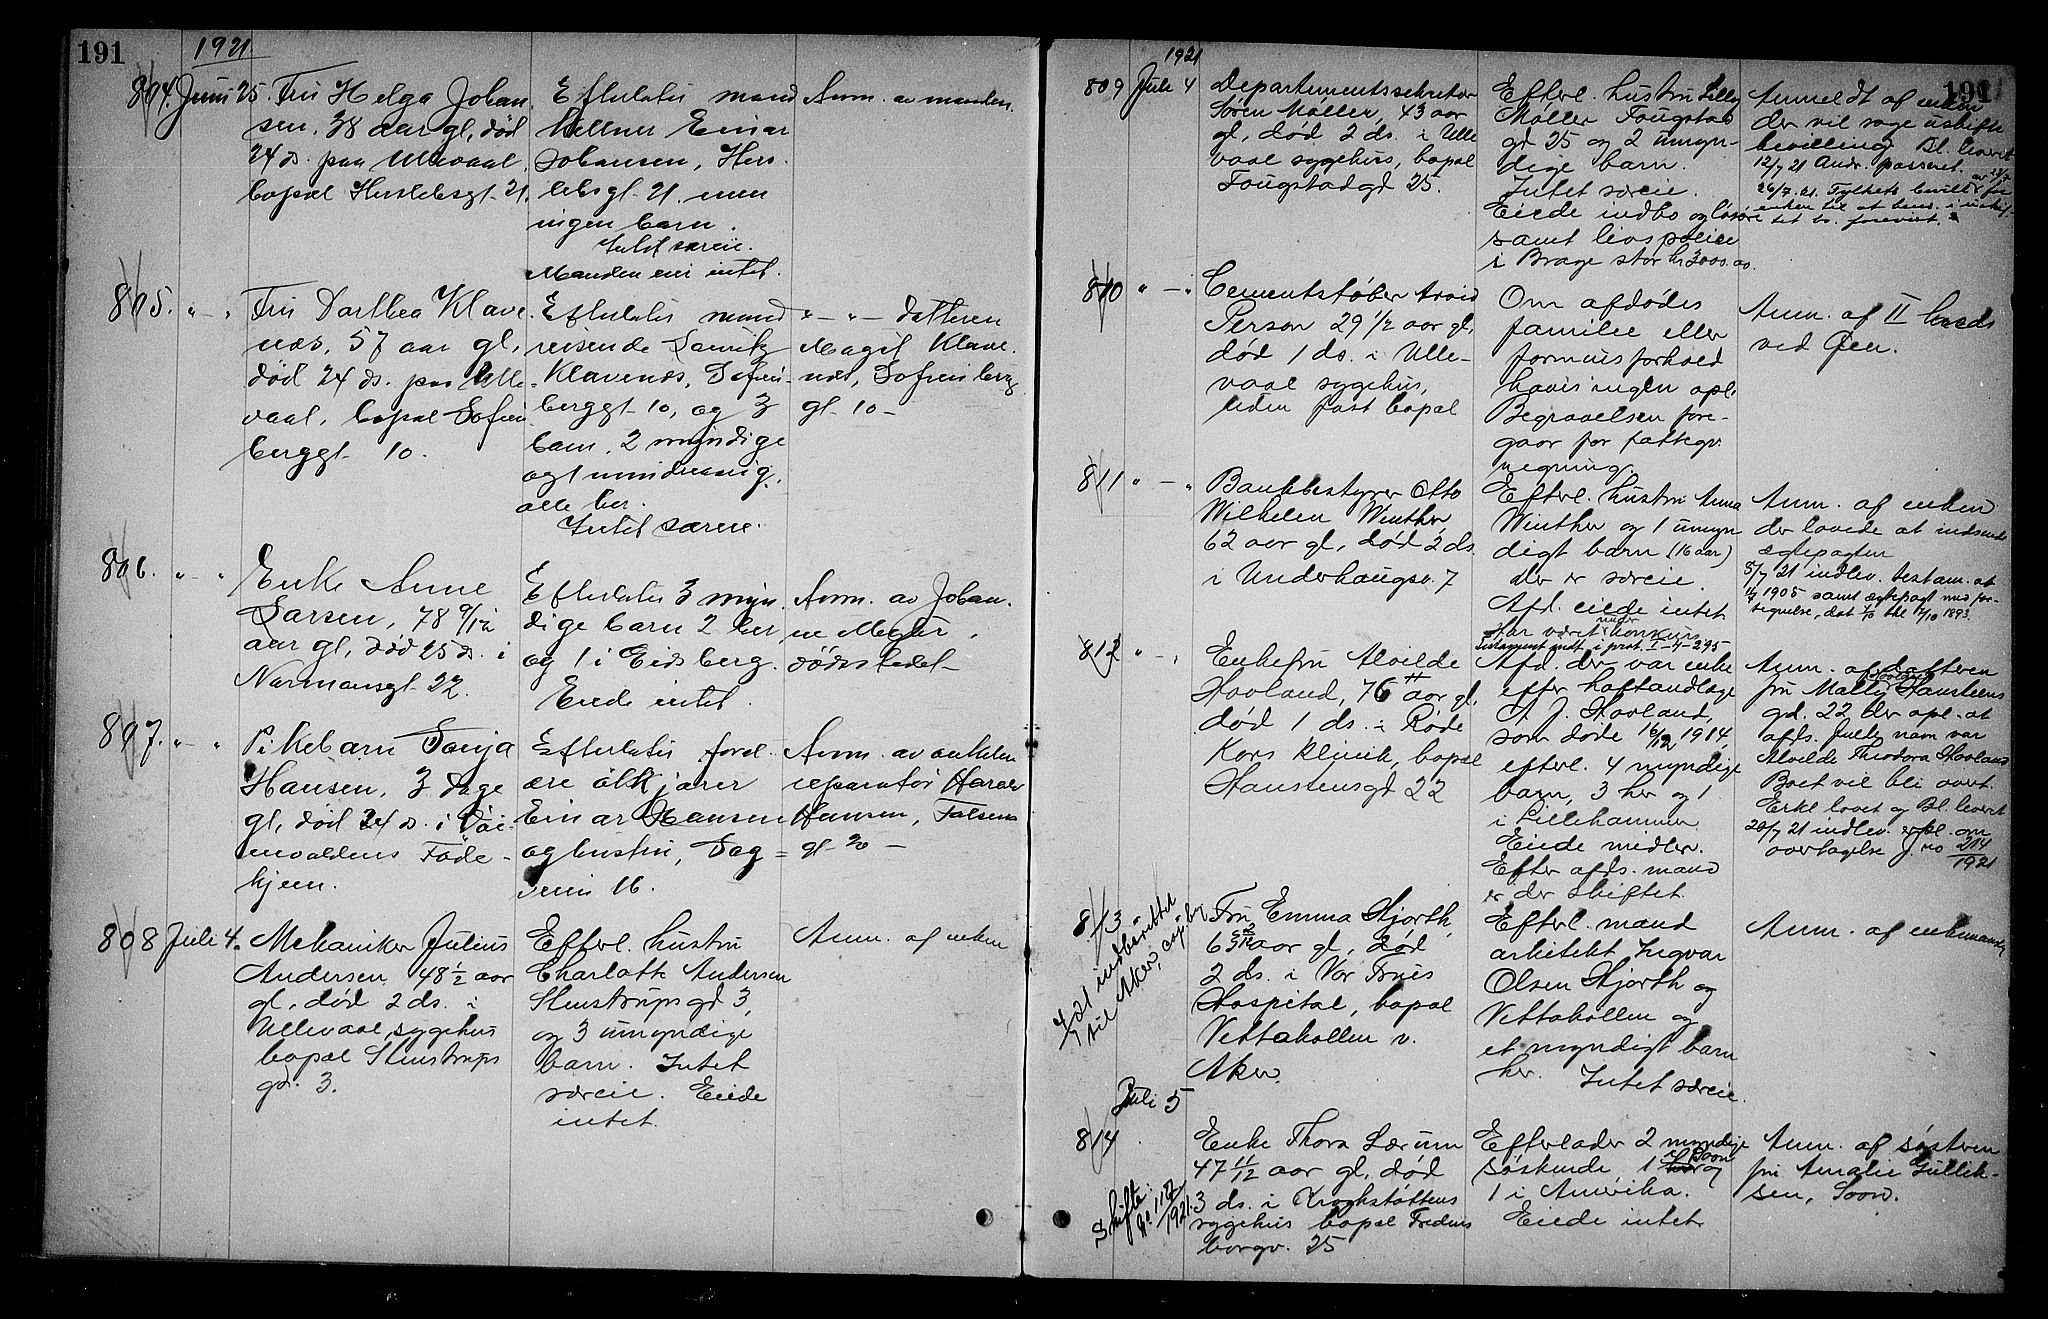 191
1921.
804. Juni 25. Fru Helga Johan-
sen, 38 aar gl, død
24 ds. paa Ullevaal,
bopæl Herslebsgt. 21.
Efterlater mand
kellner Einar
Johansen, Hers-
lebsgt. 21. men
ingen barn.
Intet særeie.
Manden eier intet.
Anm. av manden.
805. " — " Fru Dorthea Klave-
nes, 57 aar gl,
død 24 ds. paa Ulle-
vaal, bopæl Sofien-
berggt. 10.
Efterlater mand
reisende
Klavenes, Sofien-
berggt. 10, og 3
barn, 2 myndige
og 1 mindreaarig,
alle her.
Intet særeie.
" — " — datteren
Magit Klave-
nes, Sofienberg
gt. 10 —
806. " — " Enke Anne
Larsen, 78 9/12
aar gl, død 25 ds. i
Normansgt. 22.
Efterlater 3 myn-
dige barn 2 her
og 1 i Eidsberg.
Eiede intet.
Anm. av Johan-
ne Meyer,
dødsstedet —
807. " — " Pikebarn Sonja
Hansen, 3 dage
gl, død 24 ds. i
Føde-
hjem.
Efterlater foræl-
dre ølkjører
Einar Hansen
og hustru, Dag-
veien 16.
Anm. av onkelen
reparatør Harald
Hansen, Falsens
gt. 20 —
808 Juli 4. Mekaniker Julius
Andersen, 48 1/2 aar
gl, død 2 ds. i
Ullevaal sygehus
bopæl Stenstrups
gd. 3.
Efterl. hustru
Charlotte Andersen
Stenstrupsgd 3,
og 3 umyndige
barn. Intet
særeie. Eiede
intet.
Anm. af enken
191
1921
809 Juli 4 Departementssekretær
Søren Møller, 43 aar
gl, død 2 ds. i Ulle
vaal sygehus, bopæl
Fougstadgd 25.
Efterl. hustru Lilly
Møller Fougstad
gd 25 og 2 umyn-
dige barn.
Intet særeie.
Eiede indbo og løsøre
samt livspolice
i Brage stor kr 3000.00
Anmeldt af enken
der vil søge uskifte
bevilling Bl. leveret
12/7 21 Andr. passeret.
26/7. 21. Fylkets bevill. av 23/7 for
enken til at hens. i uskif-
tet bo. forevist.
810 " — " Cementstøber Arvid
Person 29 1/2 aar gl,
død 1 ds. i Ulle-
vaal sygehus,
uden fast bopæl
Om afdødes
familie eller
formuesforhold
haves ingen opl.
Begravelsen fore-
gaar for fattigv.
regning.
Anm. af II kreds
ved Øen.
811 " — " Bankbestyrer Otto
Wilhelm Winther
62 aar gl, død 2 ds.
i Underhaugsv. 7
Efterl. hustru Anna
Winther og 1 umyn
digt barn (16 aar)
Der er særeie
Afd. eiede intet
Har været under konkurs
Testament indt. i prot. I-4-295
Anm. af enken
der lovede at indsende
ægtepagten
8/7 21 indlev. testam. af
1/7 1905 samt ægtepagt med for-
segnelse, dat 7/10 1893.
812 " — " Enkefru Alvilde
Hovland, 76 aar gl,
død 1 ds. i Røde
Kors klinik, bopæl
Hansteensgd 22
Afd. der var enke
efter
A. J. Hovland,
som døde 16/12 1914,
efterl. 4 myndige
barn, 3 her og 1
i Lillehammer
Eiede midler.
Efter afds. mand
er der skiftet.
Anm. af datteren
frk Mally Hovland Hansteens
gd. 22 der opl. at
afds. fulde navn var
Alvilde Theodora Hovland
Boet vil bli overt.
Erkl lovet og Bl. leveret
20/7 21 indlev. erkl. om
overtagelse J. no 214/1921
813
Ført indberettet
til Aker,
Fru Emma Hjorth,
63 2/12 aar gl, død
2 ds. i Vor Frues
Hospital, bopæl
Vettakollen v.
Aker.
Efterl. mand
arkitekt Ingvar
Olsen Hjorth og
Vettakollen og
et myndigt barn
her. Intet særeie.
Anm. af enkemanden
Juli 5
814
Skifte
no. 117
1921.
Enke Thora Lærum
47 11/12 aar gl, død
3 ds. i Kroghstøttens
sygehus bopæl Fredens
borgv. 25
Efterlader 2 myndige
søskende 1 her i Soon og
1 i Amerika.
Eiede intet
Anm. af søsteren
fru Amalie Gullik-
sen, Soon.